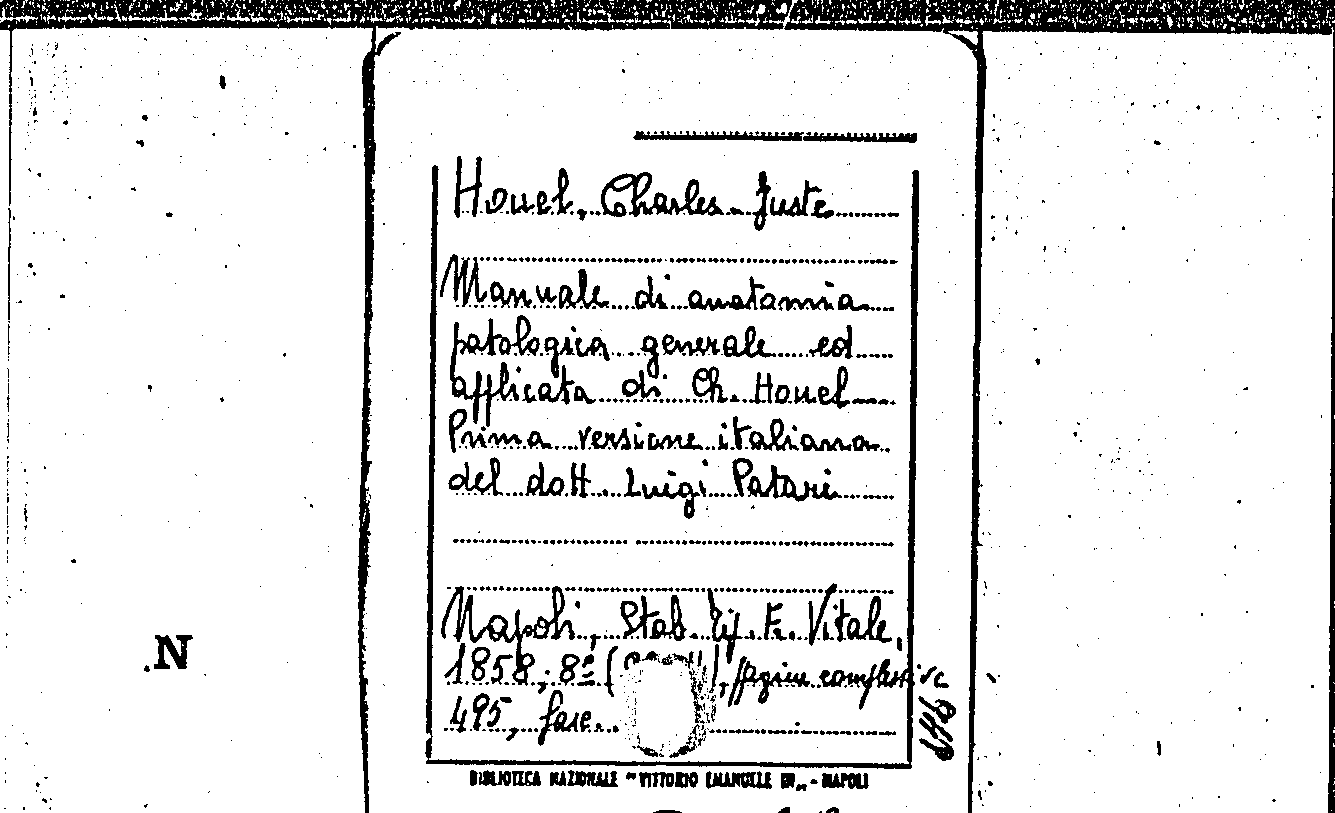 Houel, Charles-Juste
Manuale di anatomia
patologica generale ed
applicata di Ch. Houel
Prima versione italiana
del dott. Luigi Patari
Napoli, Stab. Tip. F. Vitale,
1858, 8º ( ), pagine complessive
495, fasc.
N
BIBLIOTECA NAZIONALE "VITTORIO EMANUELE III" - NAPOLI